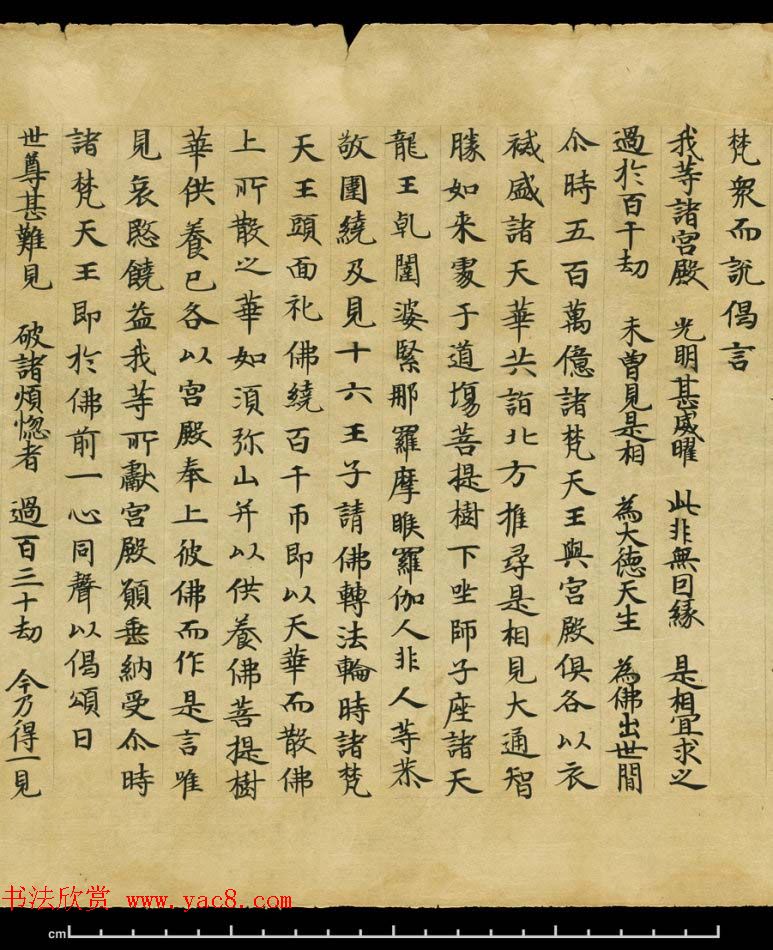 梵衆而說偈言
我等諸宮殿 光明甚威曜 此非無因緣 是相宜求之
過於百千劫 未曾見是相 為大德天生 為佛出世間
尒時五百萬億諸梵天王與宮殿俱各以衣
祴盛諸天華共詣北方推尋是相見大通智
勝如来䖏于道場菩提樹下坐師子座諸天
龍王乹闥婆緊那羅摩睺羅伽人非人等恭
敬圍繞及見十六王子請佛轉法輪時諸梵
天王頭面礼佛繞百千帀即以天華而散佛
上所散之華如須弥山并以供養佛菩提樹
華供養已各以宮殿奉上彼佛而作是言唯
見哀愍饒益我等所獻宮殿願垂納受尒時
諸梵天王即於佛前一心同聲以偈頌曰
世尊甚難見 破諸煩惚者 過百三十劫 今乃得一見
书法欣赏 www.yac8.com
cm